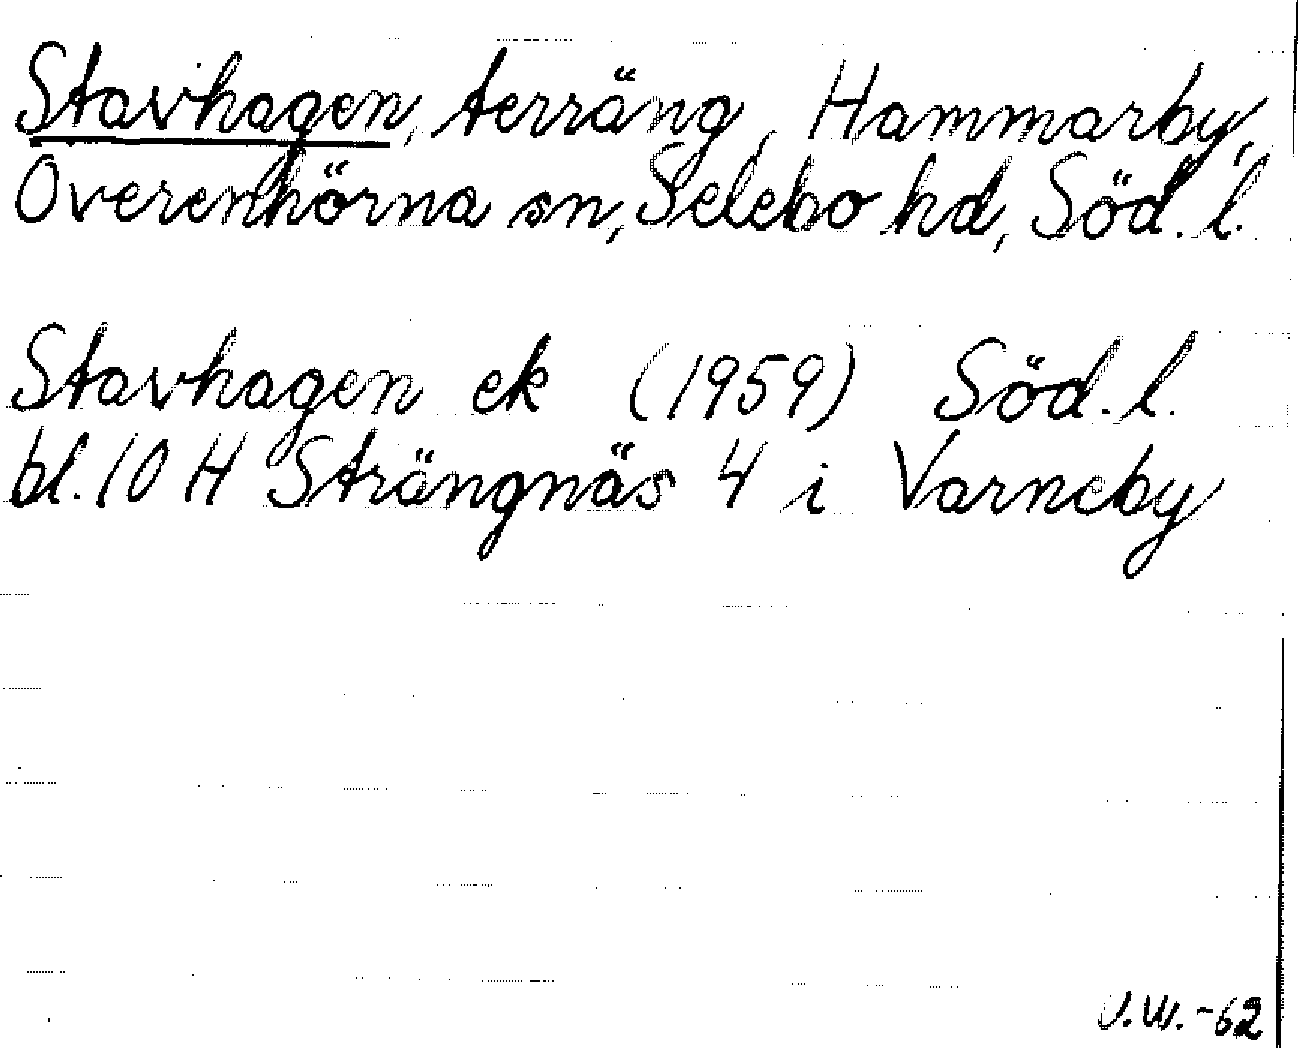 Stavhagen, terräng, Hammarby,
Överenhörna sn, Selebo hd, Söd. l.
Stavhagen ek (1959) Söd. l.
bl. 10 H Strängnäs 4 i Varneby
V.W.-62